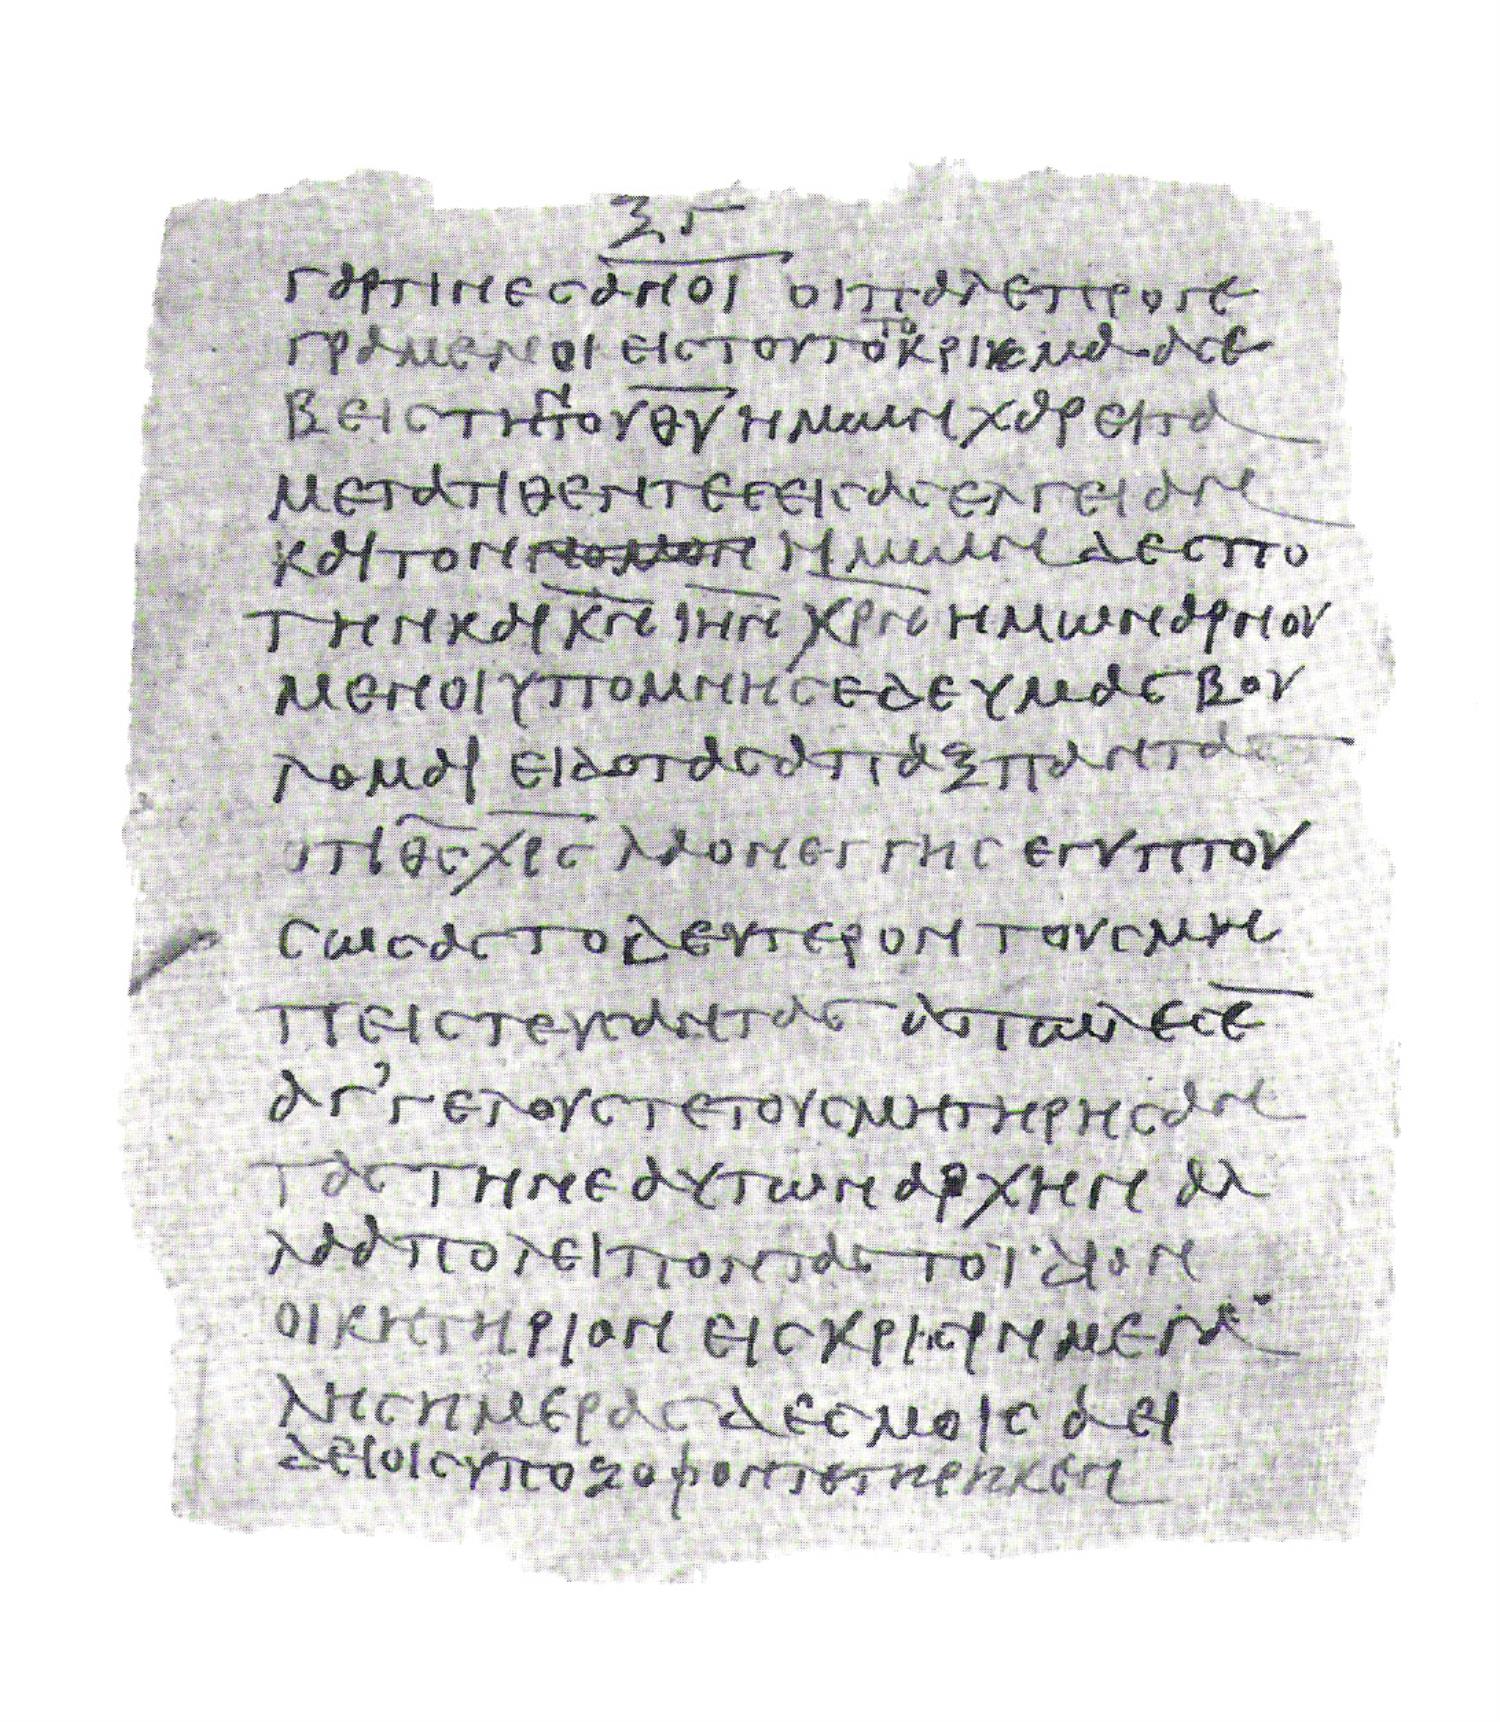 ξγ
γαρτινεσανοι οιπαλεπρογε
γραμενοιειστουτοτοκριμαασε
βειστηντουθυημωνχαρειτα
μετατιθεντεσεισασελγειαν
καιτοννομονημωνδεσπο
τηνκαικνιηνχρνημωναρνου
μενοιυπομνησεδευμασβου
λομαιειδοτασαπαξπαντα
οτιθσχρσλαονεγγησεγυπτου
σωσαστοδευτεροντουσμη
πειστευσαντασαπωλεσε
αγ’γελουστετουσμητηρησαν
ταστηνεαυτωναρχηναλ
λααπολειπονταστοϊδιον
οικητηριονεισκρισινμεγα
λησημερασδεσμοισαει
δειοισυποζοφοντετηρηκεν